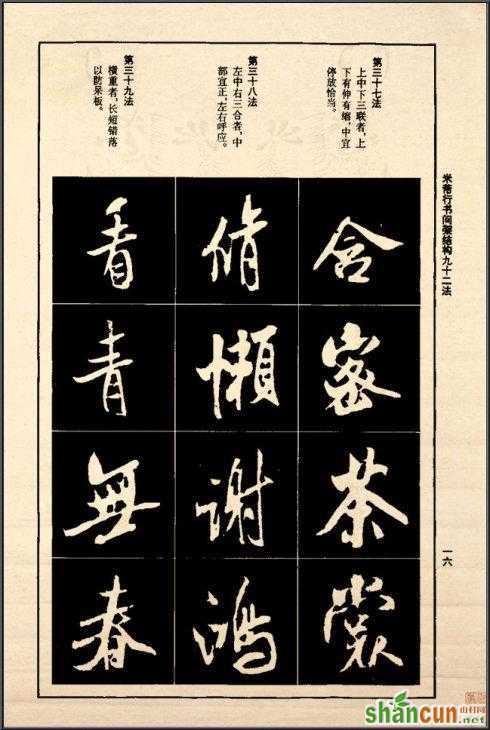 米芾行书间架结构九十二法
一六
第三十七法
上中下三联者，上
下有伸有缩，中宜
停放恰当。
含密茶裳
第三十八法
左中右三合者，中
部宜正，左右呼应。
脩懶謝鴻
第三十九法
横重者，长短错落
以防呆板。
看青無春
shancun
山村网
.net